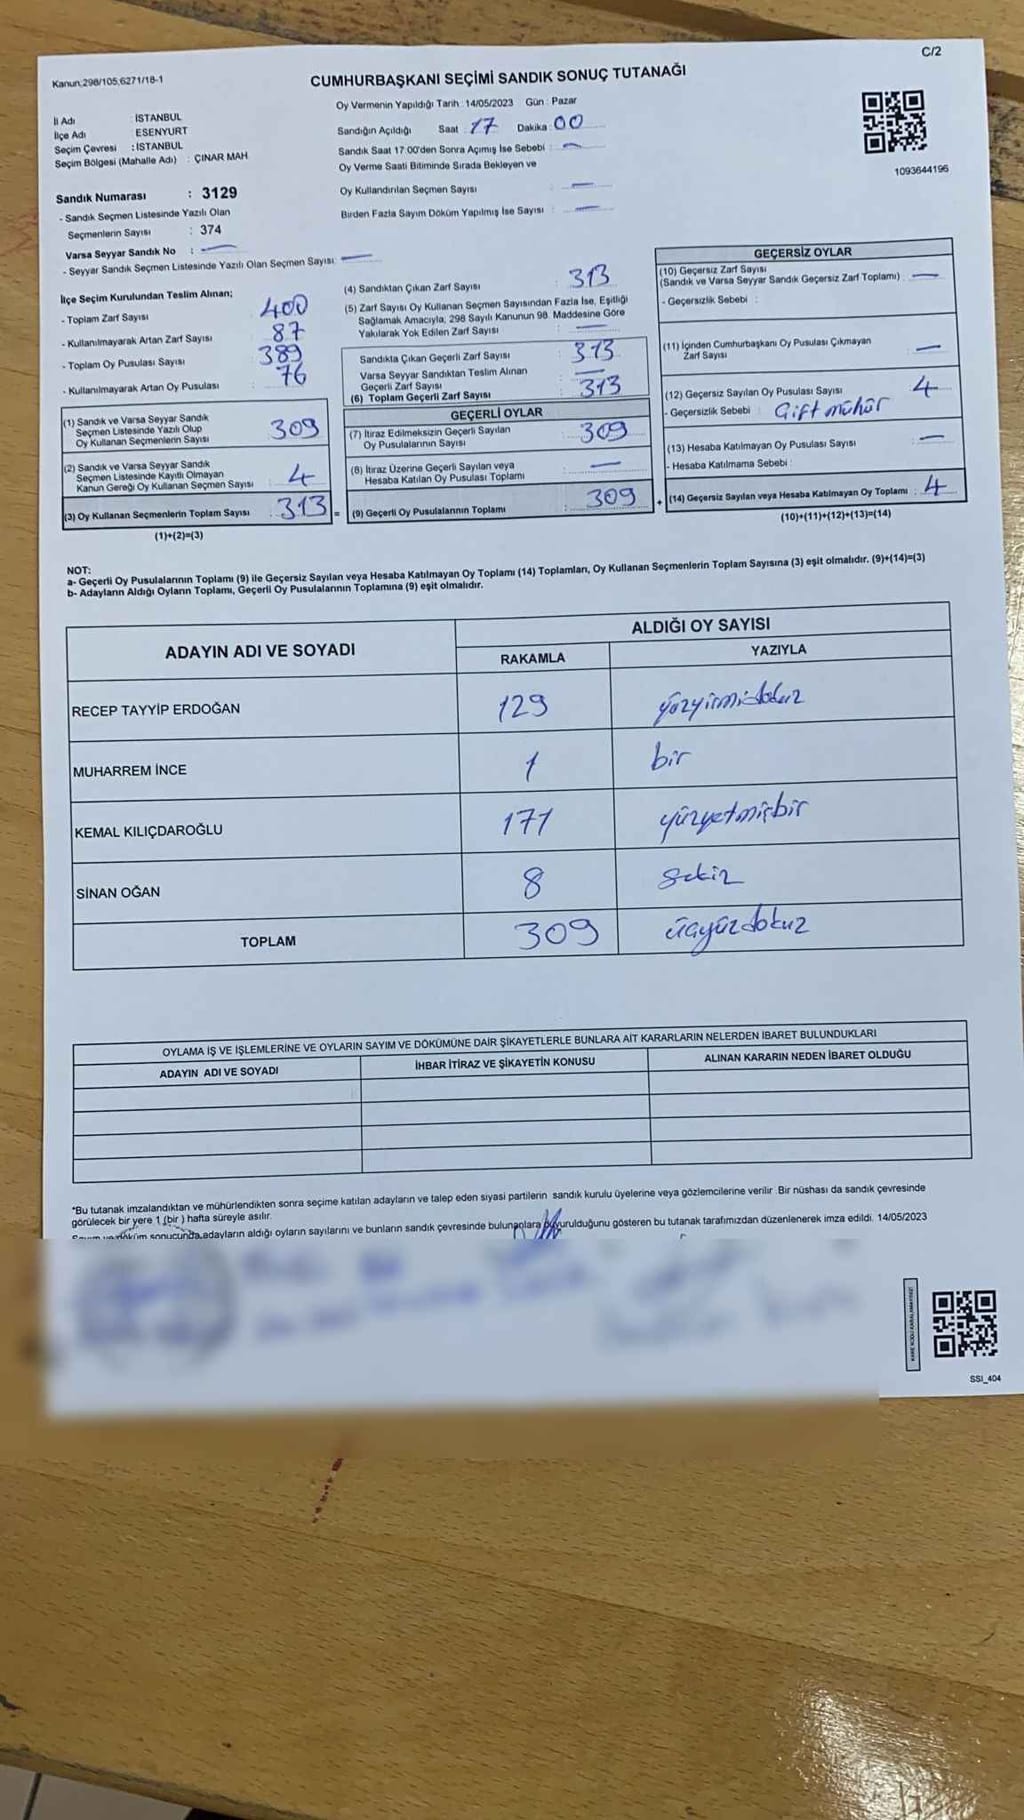 C/2
Kanun:298/105,6271/18-1
CUMHURBAŞKANI SEÇİMİ SANDIK SONUÇ TUTANAĞI
İl Adı : İSTANBUL
İlçe Adı : ESENYURT
Seçim Çevresi : İSTANBUL
Seçim Bölgesi (Mahalle Adı) : ÇINAR MAH
Oy Vermenin Yapıldığı Tarih : 14/05/2023 Gün : Pazar
Sandığın Açıldığı Saat : 17 Dakika : 00
Sandık Saat 17:00'den Sonra Açımış İse Sebebi : —
Oy Verme Saati Bitiminde Sırada Bekleyen ve
Oy Kullandırılan Seçmen Sayısı : —
Birden Fazla Sayım Döküm Yapılmış İse Sayısı : —
1093644196
Sandık Numarası : 3129
- Sandık Seçmen Listesinde Yazılı Olan
Seçmenlerin Sayısı : 374
Varsa Seyyar Sandık No : —
- Seyyar Sandık Seçmen Listesinde Yazılı Olan Seçmen Sayısı: —
İlçe Seçim Kurulundan Teslim Alınan;
- Toplam Zarf Sayısı : 400
- Kullanılmayarak Artan Zarf Sayısı : 87
- Toplam Oy Pusulası Sayısı : 389
- Kullanılmayarak Artan Oy Pusulası : 76
(1) Sandık ve Varsa Seyyar Sandık
Seçmen Listesinde Yazılı Olup
Oy Kullanan Seçmenlerin Sayısı : 309
(2) Sandık ve Varsa Seyyar Sandık
Seçmen Listesinde Kayıtlı Olmayan
Kanun Gereği Oy Kullanan Seçmen Sayısı : 4
(3) Oy Kullanan Seçmenlerin Toplam Sayısı : 313 =
(1)+(2)=(3)
(4) Sandıktan Çıkan Zarf Sayısı : 313
(5) Zarf Sayısı Oy Kullanan Seçmen Sayısından Fazla İse, Eşitliği
Sağlamak Amacıyla; 298 Sayılı Kanunun 98. Maddesine Göre
Yakılarak Yok Edilen Zarf Sayısı : —
Sandıkta Çıkan Geçerli Zarf Sayısı : 313
Varsa Seyyar Sandıktan Teslim Alınan
Geçerli Zarf Sayısı : —
(6) Toplam Geçerli Zarf Sayısı : 313
GEÇERLİ OYLAR
(7) İtiraz Edilmeksizin Geçerli Sayılan
Oy Pusulalarının Sayısı : 309
(8) İtiraz Üzerine Geçerli Sayılan veya
Hesaba Katılan Oy Pusulası Toplamı : —
(9) Geçerli Oy Pusulalarının Toplamı : 309 +
GEÇERSİZ OYLAR
(10) Geçersiz Zarf Sayısı
(Sandık ve Varsa Seyyar Sandık Geçersiz Zarf Toplamı) : —
- Geçersizlik Sebebi :
(11) İçinden Cumhurbaşkanı Oy Pusulası Çıkmayan
Zarf Sayısı : —
(12) Geçersiz Sayılan Oy Pusulası Sayısı : 4
- Geçersizlik Sebebi : Çift mühür
(13) Hesaba Katılmayan Oy Pusulası Sayısı : —
- Hesaba Katılmama Sebebi :
(14) Geçersiz Sayılan veya Hesaba Katılmayan Oy Toplamı : 4
(10)+(11)+(12)+(13)=(14)
NOT:
a- Geçerli Oy Pusulalarının Toplamı (9) ile Geçersiz Sayılan veya Hesaba Katılmayan Oy Toplamı (14) Toplamları, Oy Kullanan Seçmenlerin Toplam Sayısına (3) eşit olmalıdır. (9)+(14)=(3)
b- Adayların Aldığı Oyların Toplamı, Geçerli Oy Pusulalarının Toplamına (9) eşit olmalıdır.
ADAYIN ADI VE SOYADI
ALDIĞI OY SAYISI
RAKAMLA YAZIYLA
RECEP TAYYİP ERDOĞAN 129 yüzyirmidokuz
MUHARREM İNCE 1 bir
KEMAL KILIÇDAROĞLU 171 yüzyetmişbir
SİNAN OĞAN 8 sekiz
TOPLAM 309 üçyüzdokuz
OYLAMA İŞ VE İŞLEMLERİNE VE OYLARIN SAYIM VE DÖKÜMÜNE DAİR ŞİKAYETLERLE BUNLARA AİT KARARLARIN NELERDEN İBARET BULUNDUKLARI
ADAYIN ADI VE SOYADI İHBAR İTİRAZ VE ŞİKAYETİN KONUSU ALINAN KARARIN NEDEN İBARET OLDUĞU
*Bu tutanak imzalandıktan ve mühürlendikten sonra seçime katılan adayların ve talep eden siyasi partilerin sandık kurulu üyelerine veya gözlemcilerine verilir. Bir nüshası da sandık çevresinde
görülecek bir yere 1 (bir ) hafta süreyle asılır.
Sayım ve döküm sonucunda,adayların aldığı oyların sayılarını ve bunların sandık çevresinde bulunanlara duyurulduğunu gösteren bu tutanak tarafımızdan düzenlenerek imza edildi. 14/05/2023
SSI_404